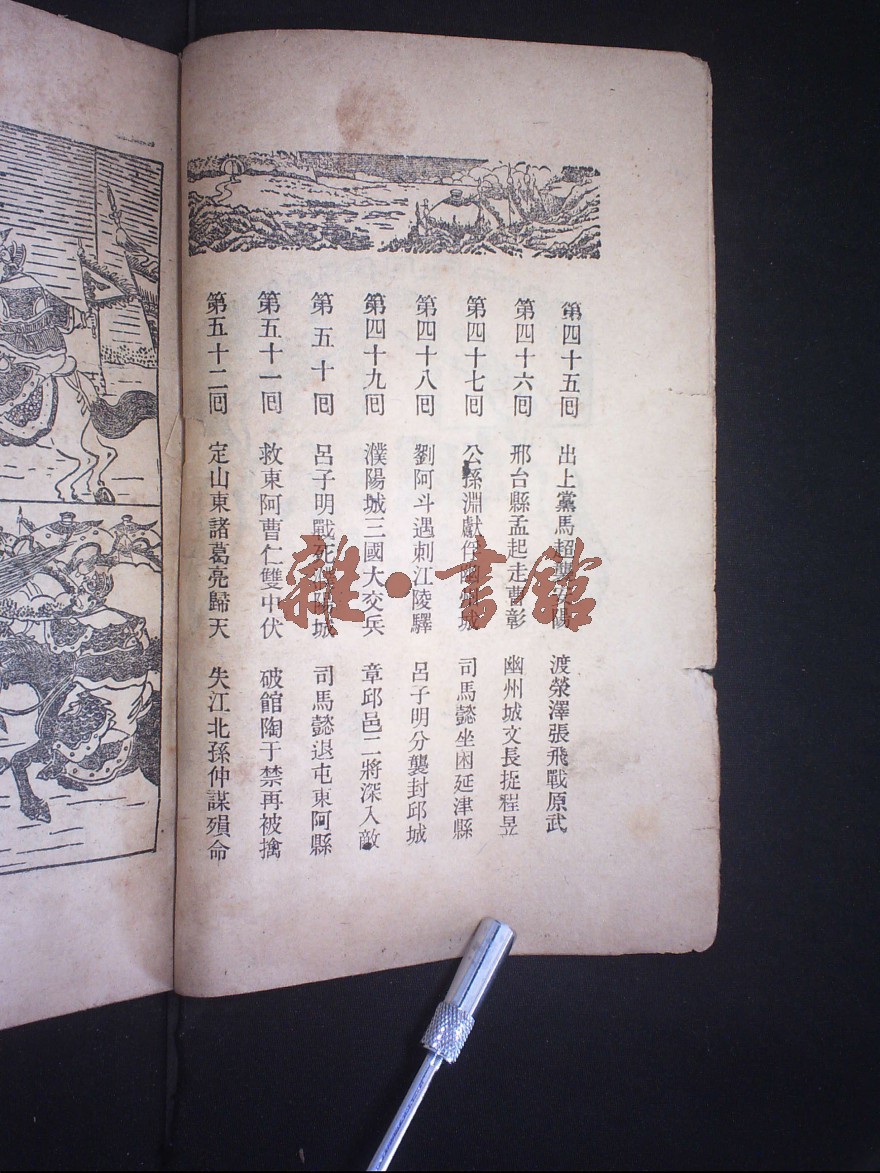 第四十五回 出上黨馬超襲安陽 渡滎澤張飛戰原武
第四十六回 邢台縣孟起走曹彰 幽州城文長捉程昱
第四十七回 公孫淵獻 城 司馬懿坐困延津縣
第四十八回 劉阿斗遇刺江陵驛 呂子明分襲封邱城
第四十九回 濮陽城三國大交兵 章邱邑二將深入敵
第五十回 呂子明戰死濮陽城 司馬懿退屯東阿縣
第五十一回 救東阿曹仁雙中伏 破館陶于禁再被擒
第五十二回 定山東諸葛亮歸天 失江北孫仲謀殞命
雜·書館